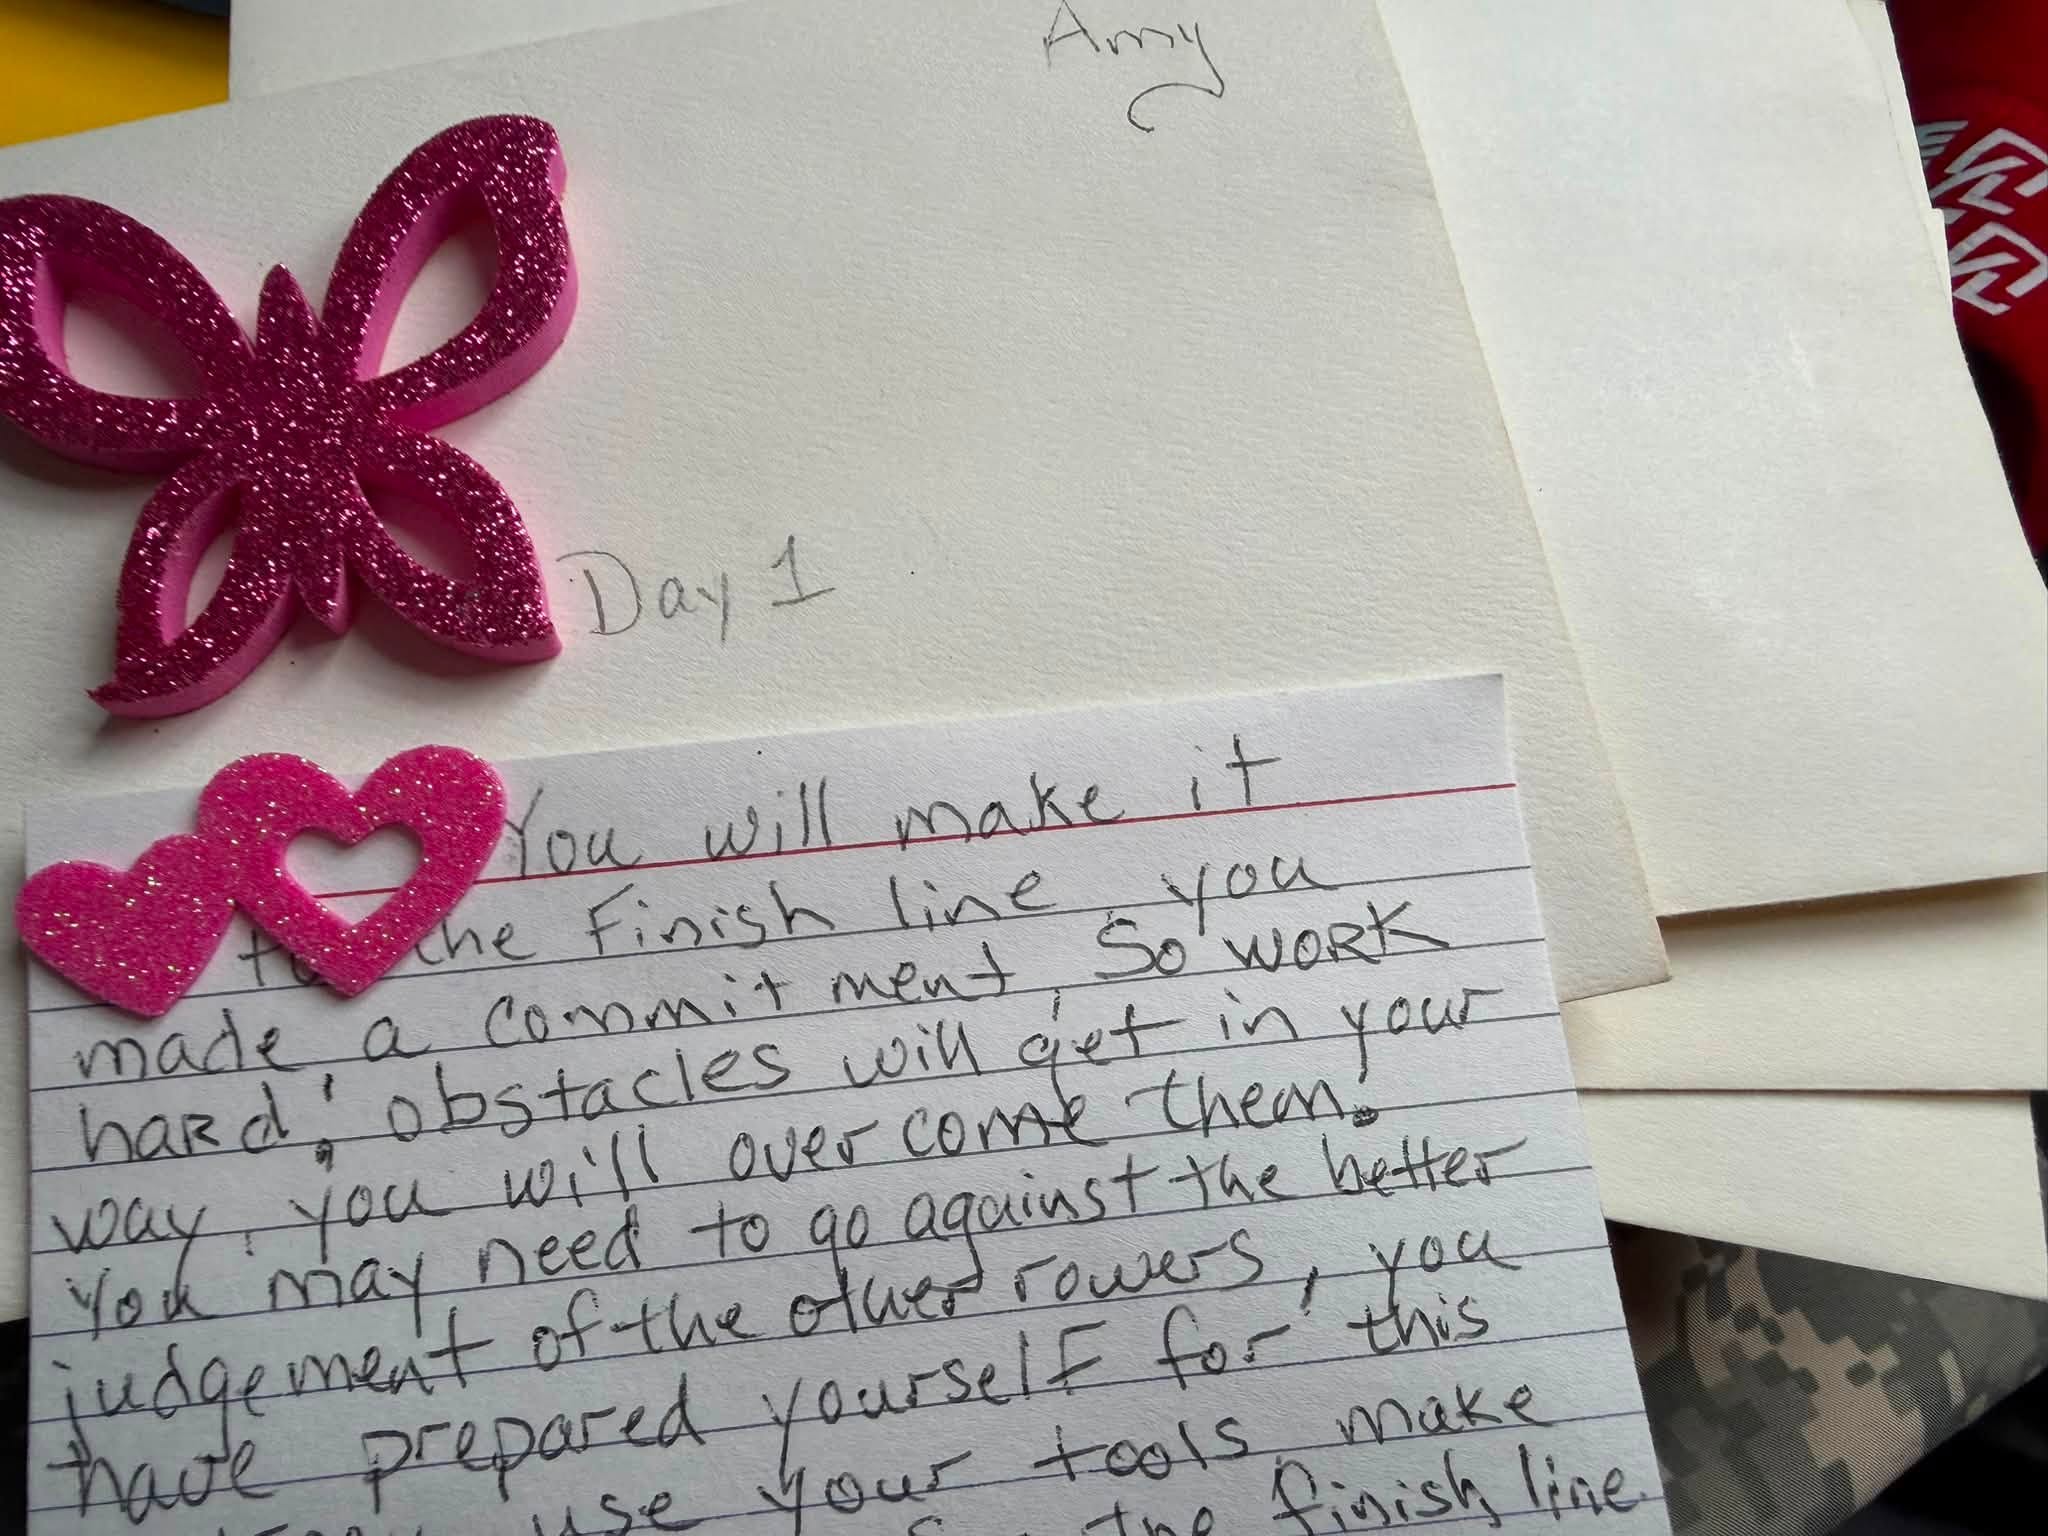 Amy
Day 1
You will make it
the Finish line, you
made a commitment, So work
hard! obstacles will get in your
way, you will overcome them.
You may need to go against the better
judgement of the other rowers, you
have prepared yourself for this
use your tools, make
the finish line